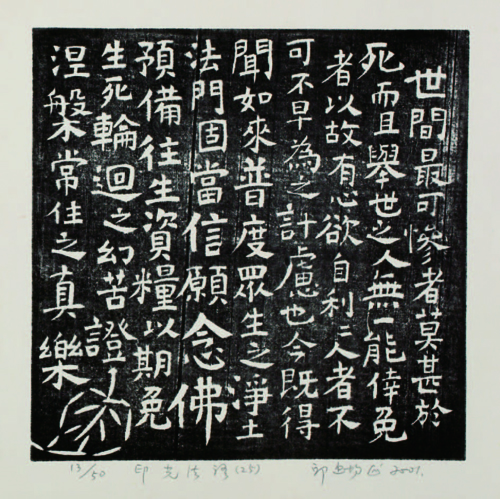 世間最可慘者莫甚於
死而且舉世之人無一能倖免
者以故有心欲自利二人者不
可不早為之計慮也今既得
聞如來普度眾生之淨土
法門固當信願念佛
預備往生資糧以期免
生死輪迴之幻苦證
涅槃常住之真樂
13/50 印光法語(25) 2001.